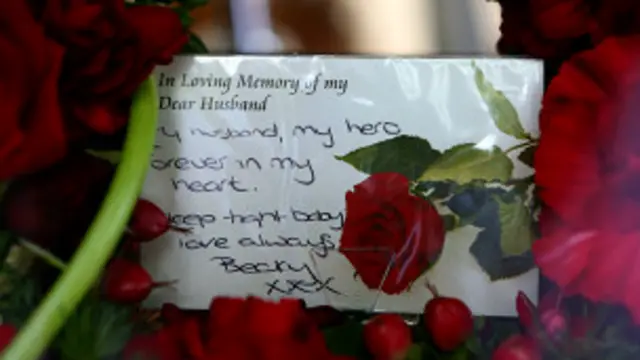 In Loving Memory of my
Dear Husband
my husband, my hero
forever in my
heart.
keep tight baby
love always
Becky
xxx